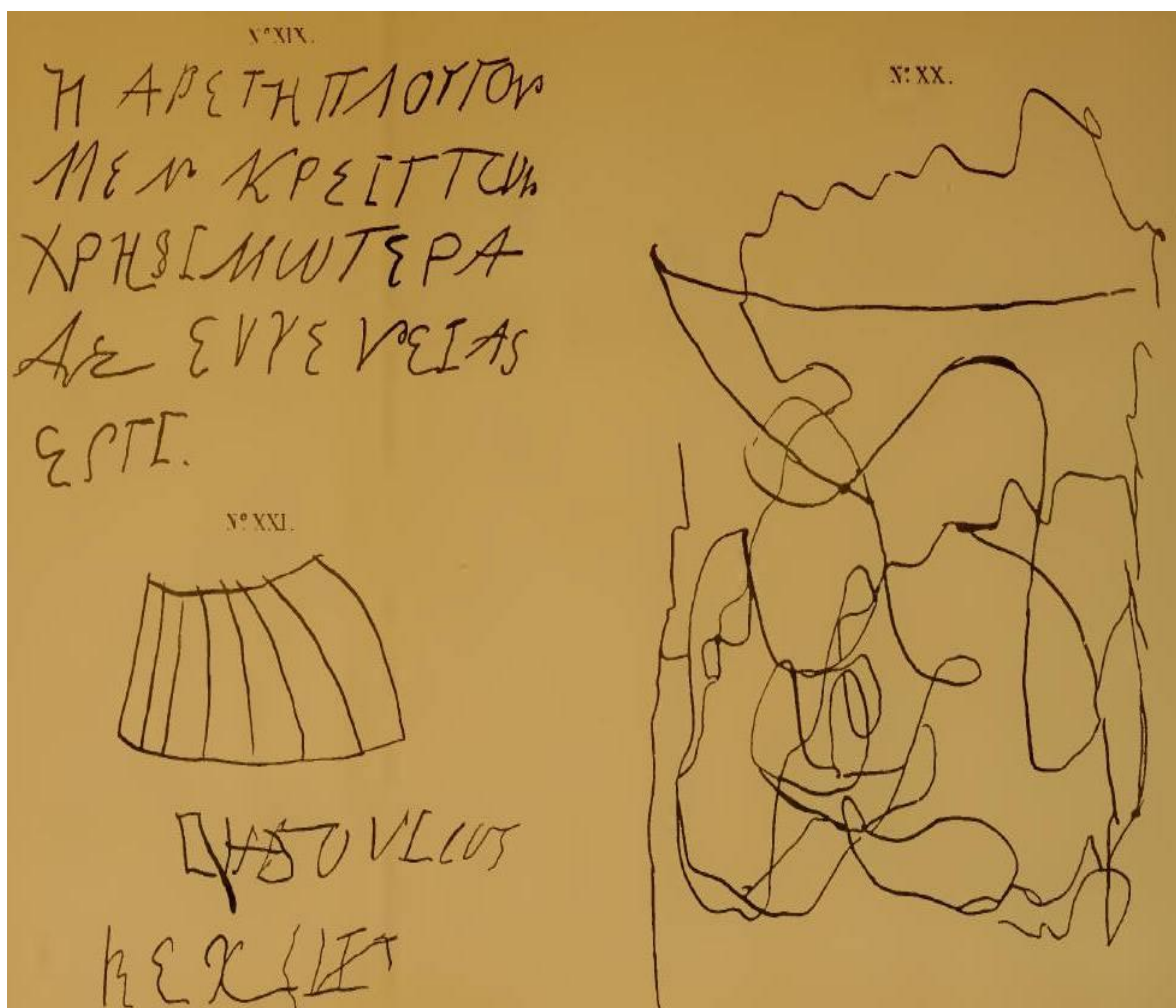 Nº XIX.
Η ΑΡΕΤΗ ΠΛΟΥΤΟΥ
ΜΕΝ ΚΡΕΙΤΤΩΝ
ΧΡΗΣΙΜΩΤΕΡΑ
ΔΕ ΕΥΓΕΝΕΙΑΣ
ΕΣΤΙ.
Nº XX.
Nº XXI.